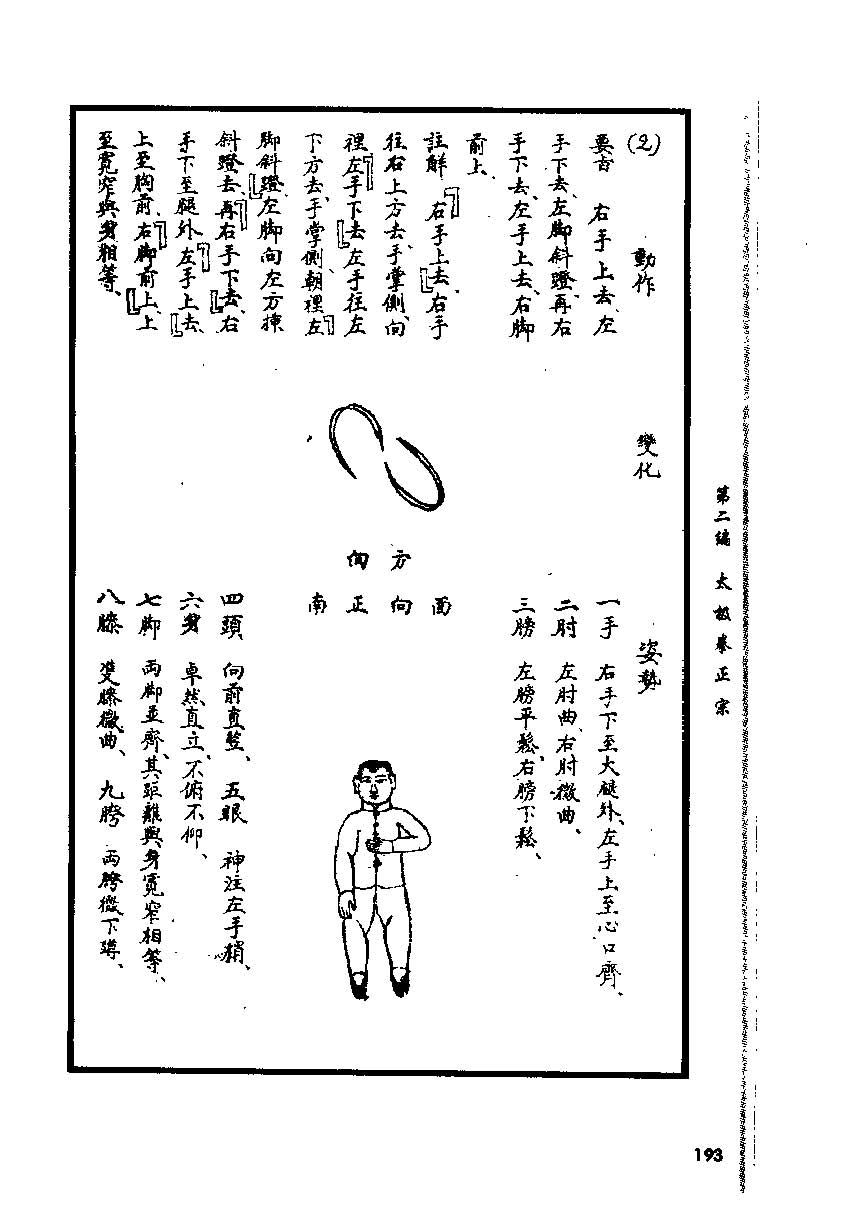 第二編 太極拳正宗
(2) 動作 變化 姿勢
要言 右手上去、左
手下去、左脚斜蹬、再右
手下去、左手上去、右脚
前上、
註解 「右手上去、」右手
往右上方去、手掌側、向
裡「左手下去」左手往左
下方去、手掌側、朝裡「左
脚斜蹬」左脚向左方
斜蹬去、「再右手下去、」右
手下至腿外「左手上去、」
上至胸前、「右脚前上、」上
至寬窄與身相等、
一手 右手下至大腿外、左手上至心口齊、
二肘 左肘曲、右肘微曲、
三膀 左膀平鬆、右膀下鬆、
方向
面向正南
四頭 向前直豎、 五眼 神注左手梢、
六身 卓然直立、不俯不仰、
七脚 両脚並齊、其距離與身寬窄相等、
八膝 雙膝微曲、 九胯 両胯微下蹲、
193